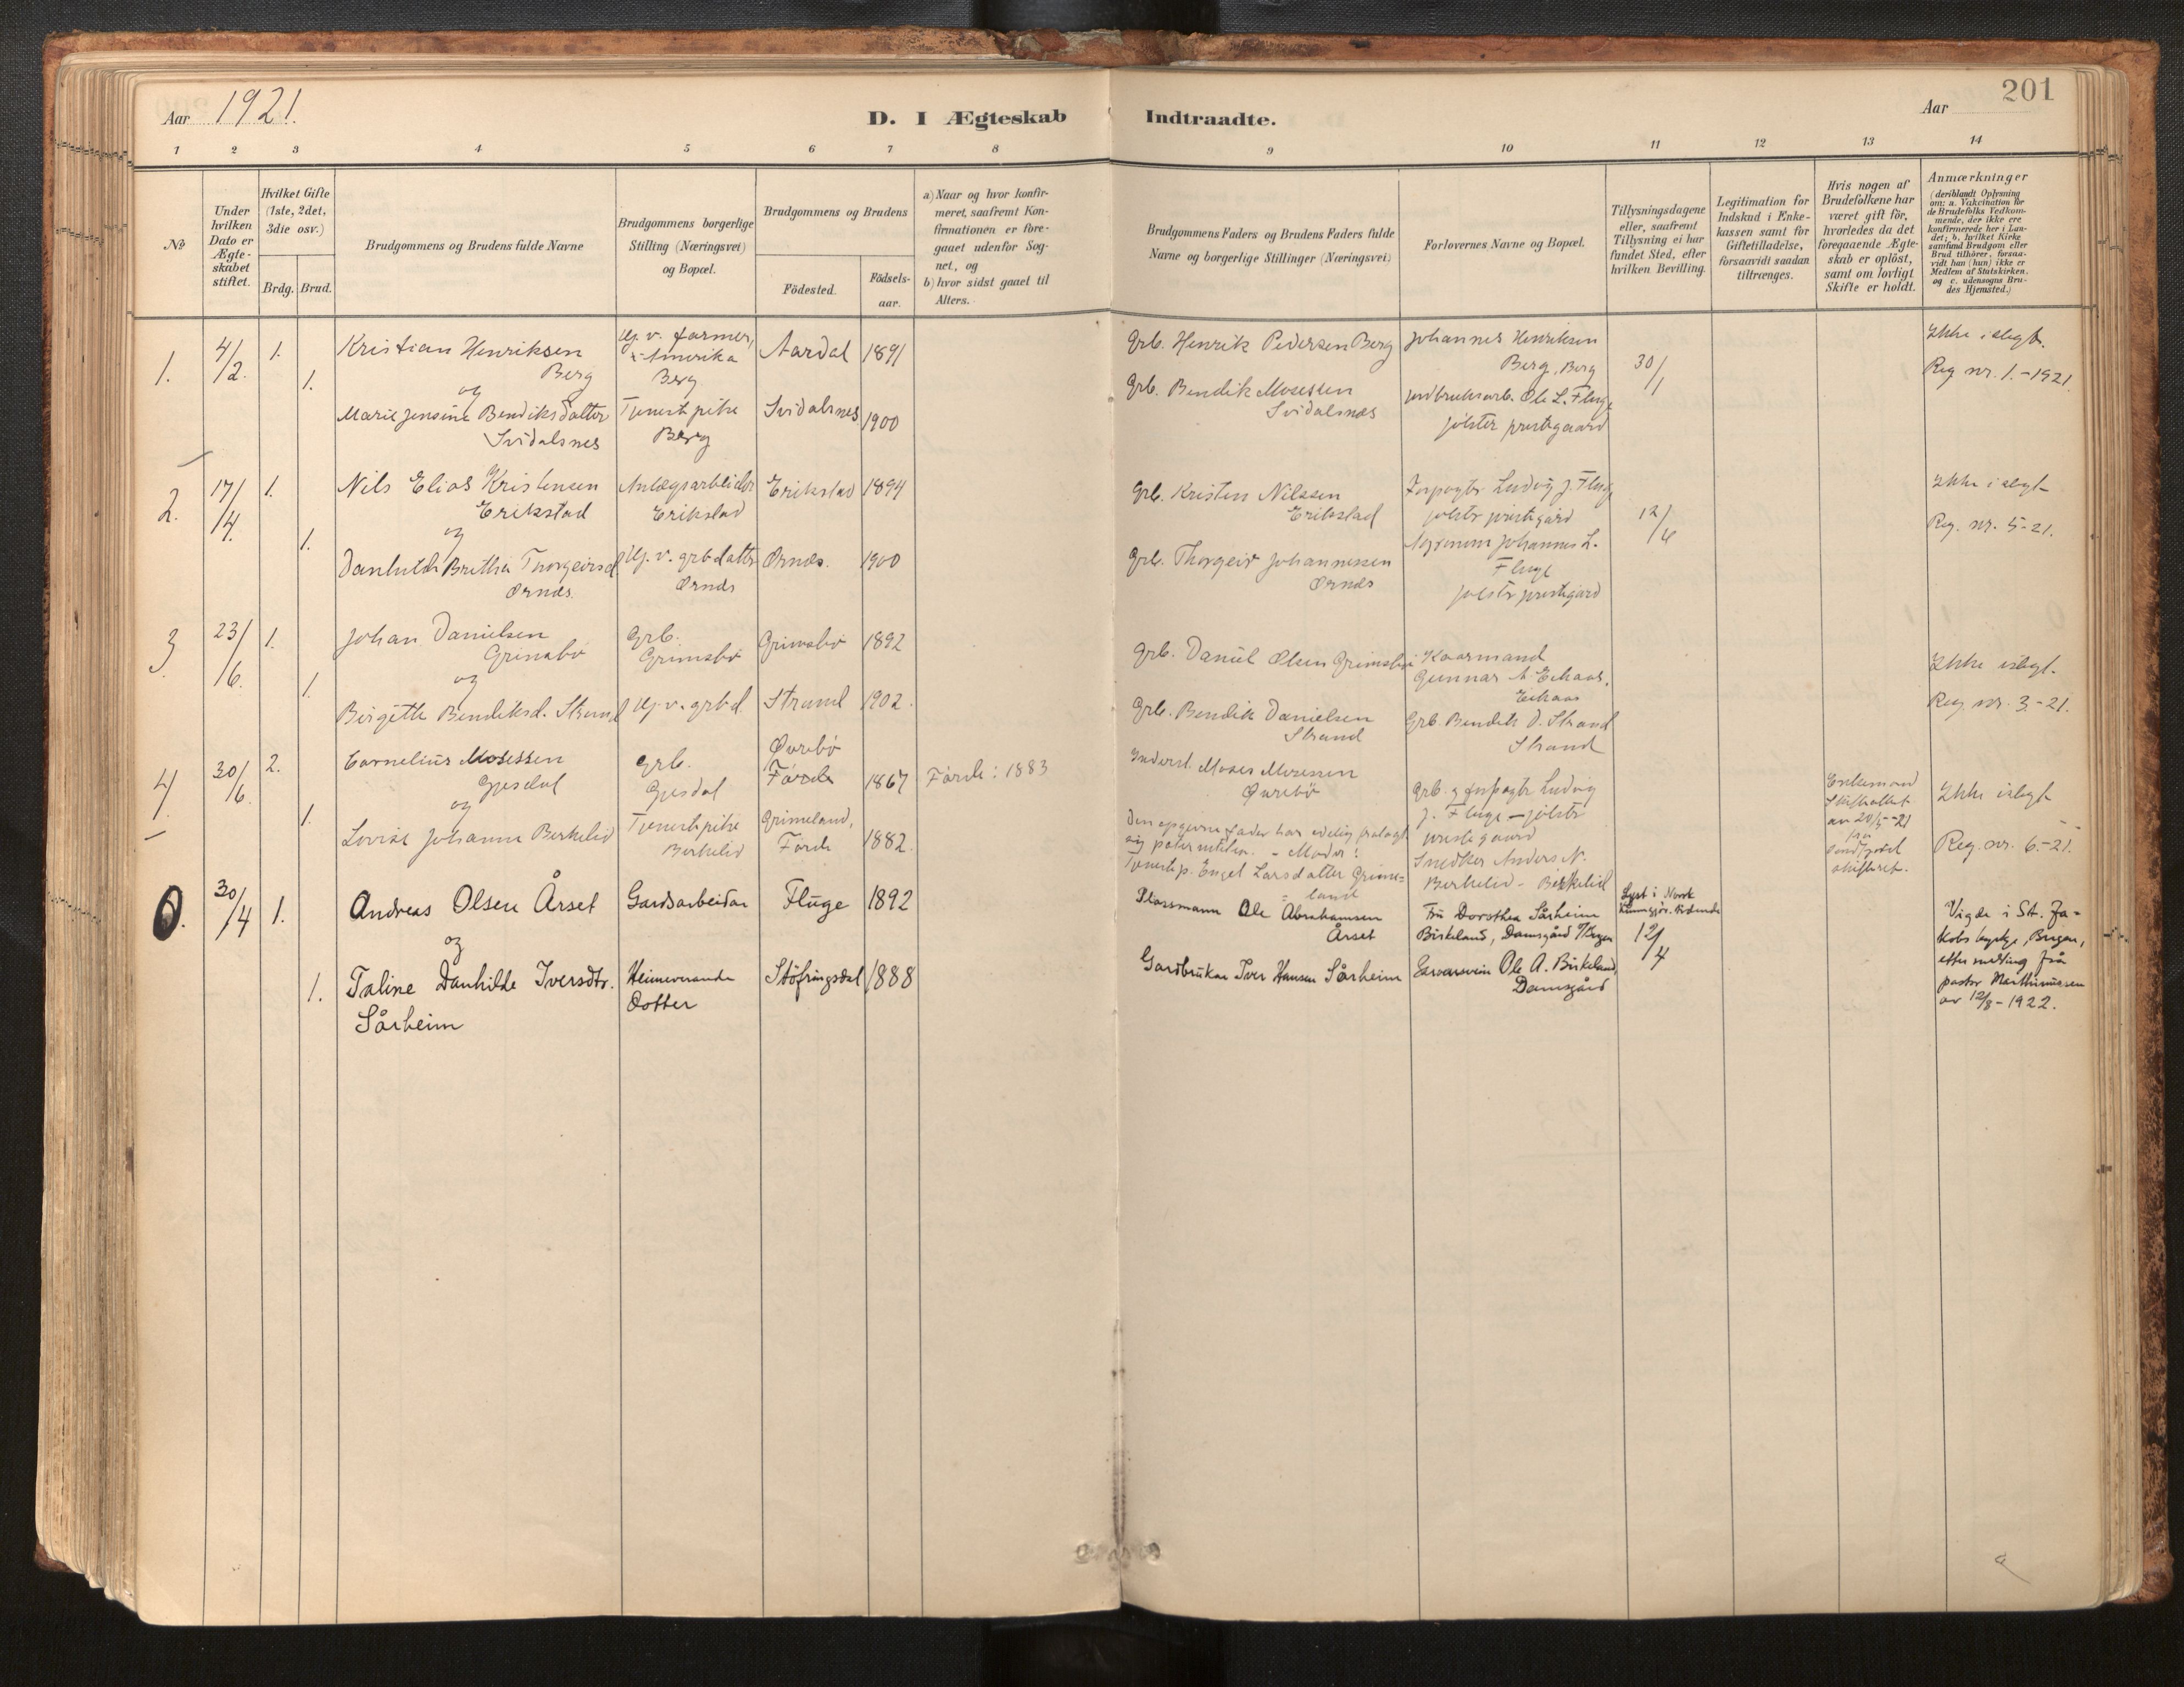 Aar 1921.
D. I Ægteskab Indtraadte.
Aar
201
1 2 3 4 5 6 7 8 9 10 11 12 13 14
No
Under hvilken Dato er Ægteskabet stiftet.
Hvilket Gifte (1ste, 2det, 3die osv.)
Brdg. Brud.
Brudgommens og Brudens fulde Navne
Brudgommens borgerlige Stilling (Næringsvei) og Bopæl.
Brudgommens og Brudens
Födested.
Födselsaar.
a) Naar og hvor konfirmeret, saafremt Konfirmationen er foregaaet udenfor Sognet, og
b) hvor sidst gaaet til Alters.
Brudgommens Faders og Brudens Faders fulde Navne og borgerlige Stillinger (Næringsvei)
Forlovernes Navne og Bopæl.
Tillysningsdagene eller, saafremt Tillysning ei har fundet Sted, efter hvilken Bevilling.
Legitimation for Indskud i Enkekassen samt for Giftetilladelse, forsaavidt saadan tiltrænges.
Hvis nogen af Brudefolkene har været gift för, hvorledes da det foregaaende Ægteskab er oplöst, samt om lovligt Skifte er holdt.
Anmærkninger
(deriblandt Oplysning om: a. Vakcination for de Brudefolks Vedkommende, der ikke ere konfirmerede her i Landet; b. hvilket Kirkesamfund Brudgom eller Brud tilhører, forsaavidt han (hun) ikke er Medlem af Statskirken. og c. udensogns Brudes Hjemsted.)
1. 4/2. 1. 1.
Kristian Henriksen
Berg
og
Marie Jensine Bendiksdatter
Svidalsnes
Hj. v. farmer,
i Amerika
Berg
Tjenestpike
Berg
Aardal 1891
Svidalsnes 1900
Grb. Henrik Pedersen Berg
Grb. Bendik Mosessen
Svidalsnes
Johannes Henriksen
Berg, Berg
Jordbruksarb. Ole L. Fluge
Jølster prestegaard
30/1
Ikke i slegt.
Reg nr. 1.-1921.
2. 17/4. 1. 1.
Nils Elias Kristensen
Erikstad
og
Danhilda Brithe Thorgeirsd
Ørnes.
Anlægsarbeider
Erikstad
Hj. v. grbdatter
Ørnes
Erikstad 1894
Ørnes. 1900
Grb. Kristen Nilssen
Erikstad
Grb. Thorgeir Johannessen
Ørnes
Forpagtr Ludvig J. Fluge
jølstr prestgård
Johannes L.
Fluge
jølstr prestgård
Ikke i slegt
Reg. nr. 5-21.
3. 23/6. 1. 1.
Johan Danielsen
Grimsbø
og
Birgitte Bendiksd. Strand
Grb.
Grimsbø
Hj. v. grbd.
Grimsbø 1892
Strand 1902.
Grb. Daniel Olsen Grimsbø
Grb. Bendik Danielsen
Strand
Kaarmand
Gunnar A Eikaas,
Eikaas
Grb. Bendik D. Strand
Strand
Ikke islegt.
Reg nr. 3.-21.
4. 30/6. 2. 1.
Cornelius Mosessen
Gjesdal
og
Lovise Johanne Berkelid
grb.
Gjesdal
Tjenestpike
Berkelid
Øvrebø
Førde 1867
Grimeland,
Førde 1882.
Førde: 1883
Inderst. Moses Mosessen
Øvrebø
Den opgivne fader har edelig fralagt
sig paterniteten. - Moder:
Tjenestp. Engel Larsdatter Grime=
land
Grb. g forpagtr Ludvig
J. Fluge - jølstr
prestegaard
Snedker Anders N.
Berkelid - Birkelid
Enkemand
Skifteattest
av 20/5-21
fra
Sundfjord
skifteret.
Ikke islegt
Reg. nr. 6.-21.
0. 30/4 1. 1.
Andreas Olsen Årset
og
Taline Danhilde Iversdtr.
Sårheim
Gardsarbeidar
Heimeverande
Dotter
Fluge 1892
Støfringsdal 1888
Plassmann Ole Abrahamsen
Årset
Gardbrukar Iver Hansen Sårheim
Fru Dorothea Sårheim
Birkeland, Damsgård v/Bergen
Ole A. Birkeland,
Damsgård
Lyst i Norsk
Kunngjør. Tidende
12/4
Vigde i St. Ja-
kobs kyrkje, Bergen,
etter melding frå
pastor Marthinussen
av 12/8-1922.